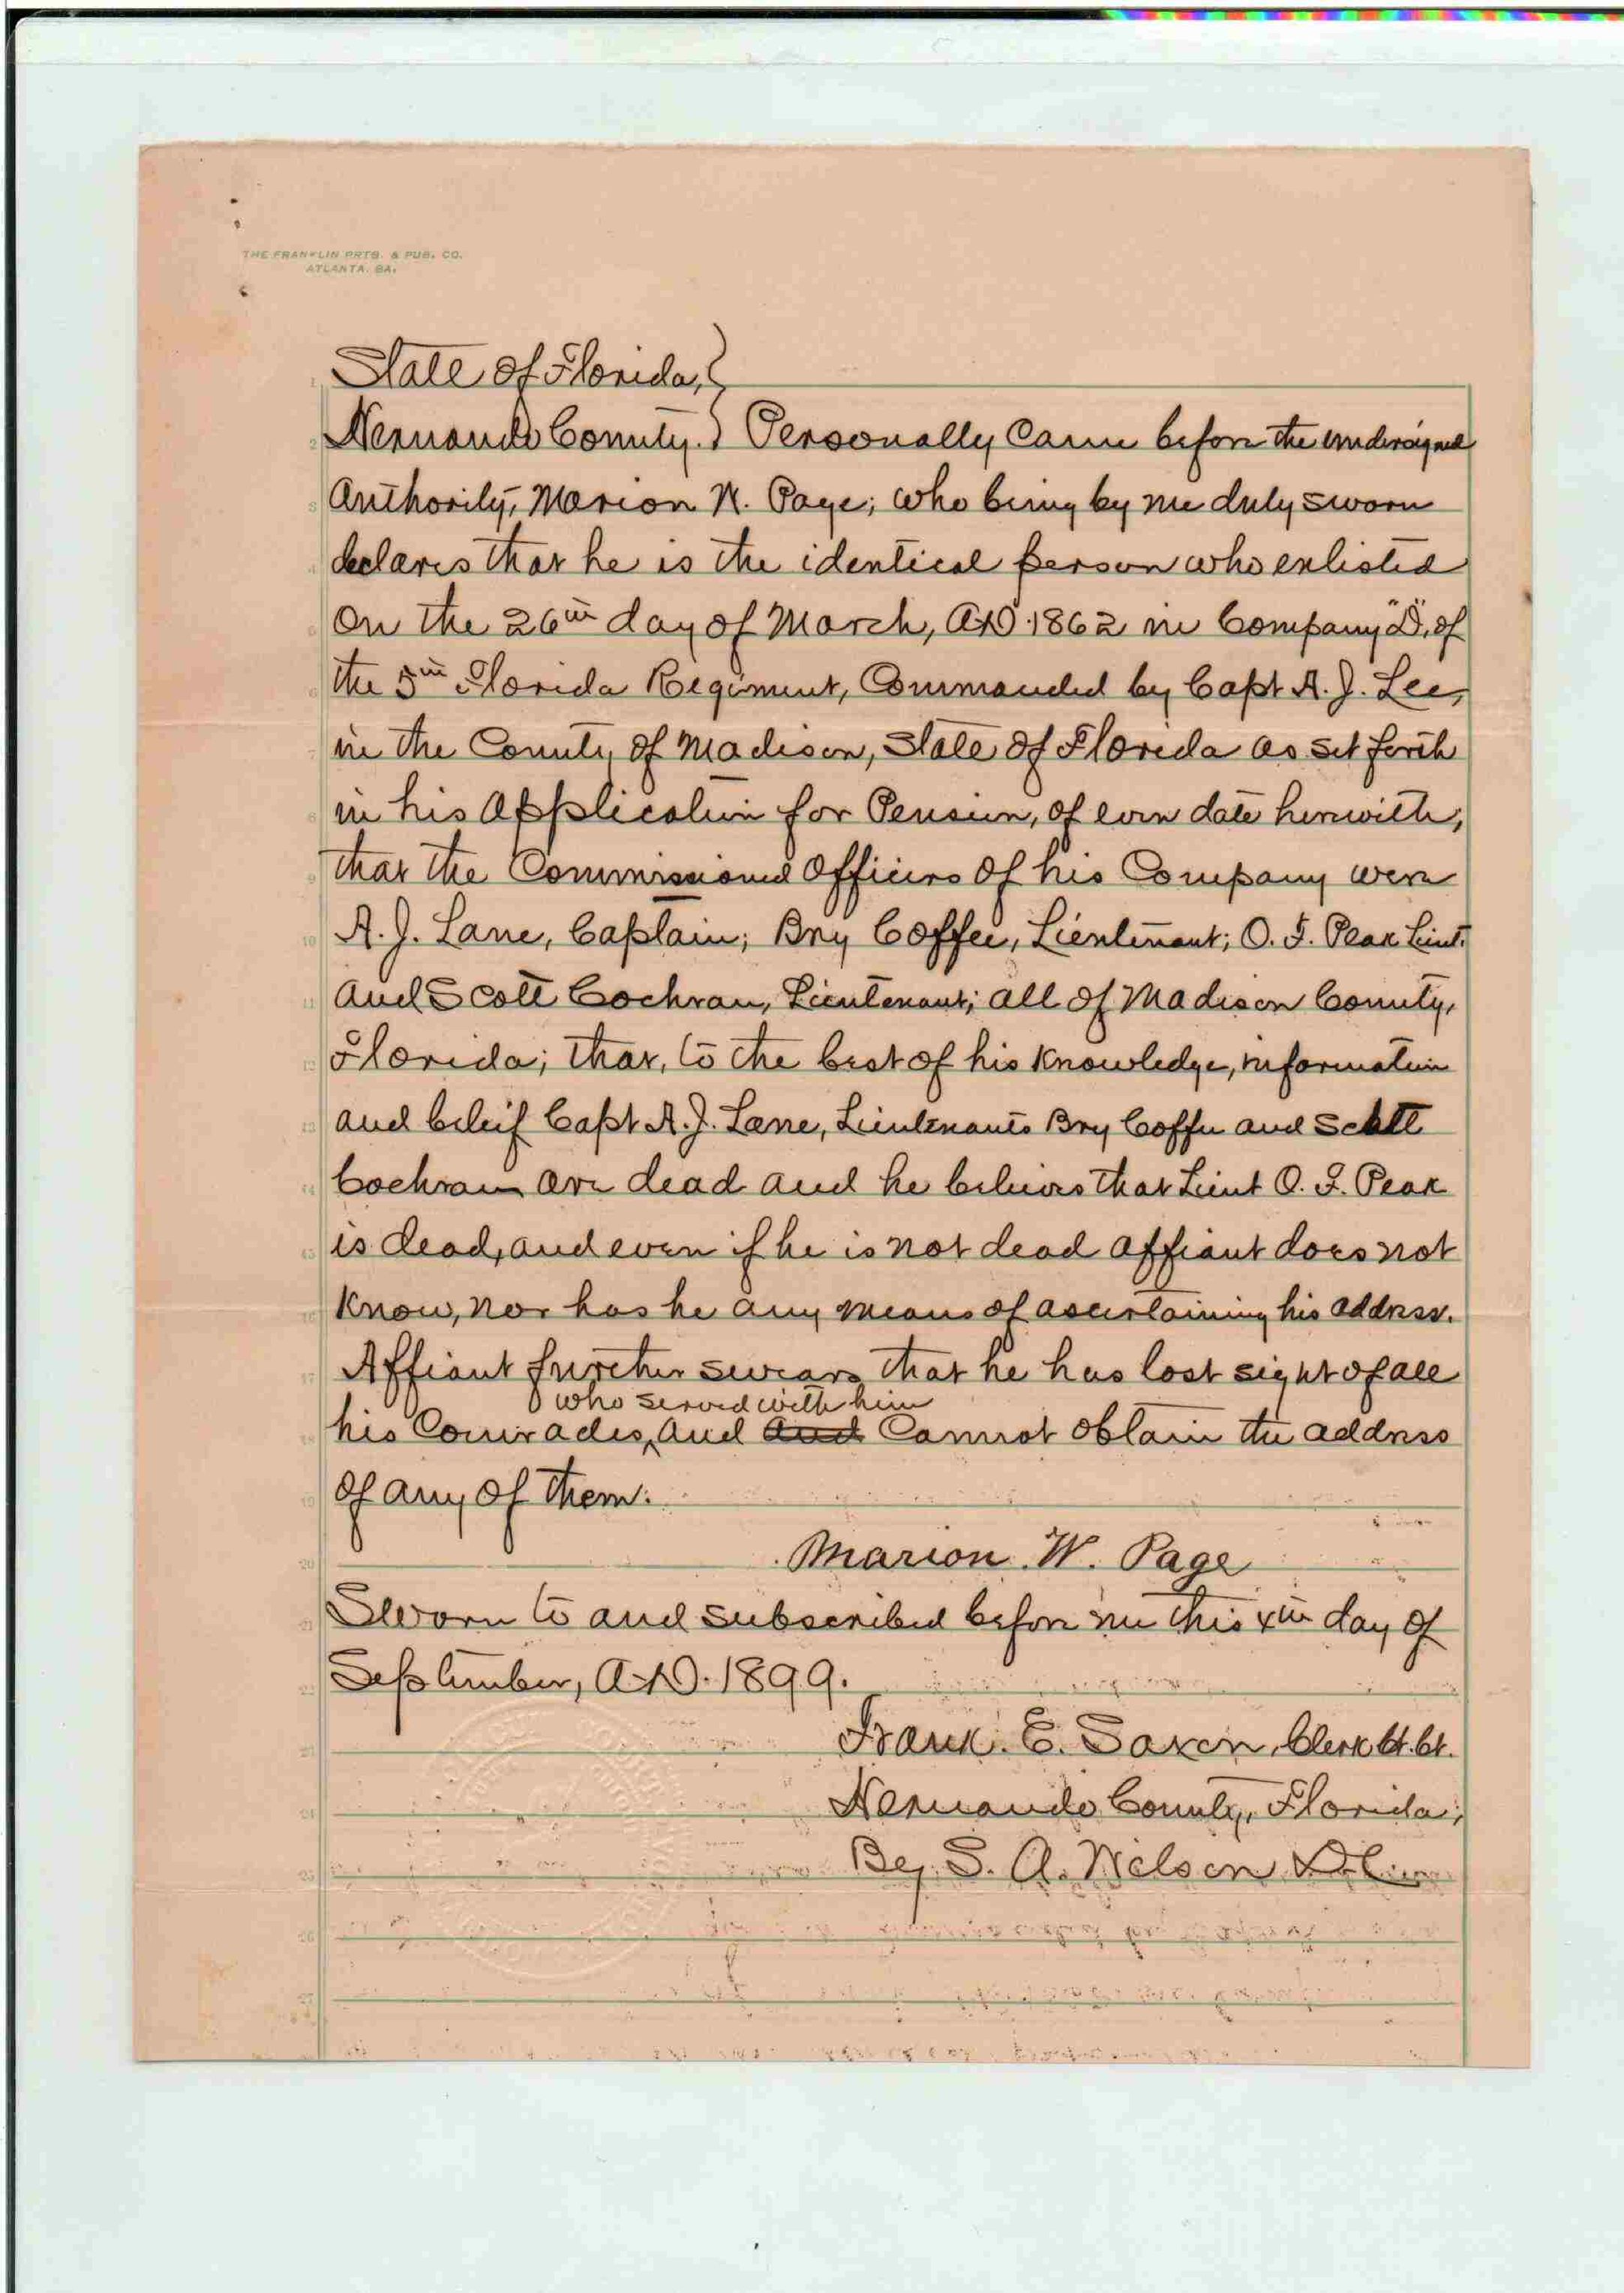 THE FRANKLIN PRTG. & PUB. CO.
ATLANTA. GA.
State of Florida, }
Hernando County. } Personally Came before the undersigned
Authority, Marion W. Page; who being by me duly sworn
declares that he is the identical person who enlisted
on the 26th day of March, A.D. 1862 in Company "D", of
the 5th Florida Regiment, Commanded by Capt A. J. Lee,
in the County of Madison, State of Florida as set forth
in his Application for Pension, of even date herewith,
that the Commissioned Officers of his Company were
A. J. Lane, Captain; Bny Coffee, Lieutenant; O. F. Peak Lieut.
and Scott Cochran, Lieutenant; all of Madison County,
Florida; that, to the best of his knowledge, information
and beleif Capt A. J. Lane, Lieutenants Bny Coffee and Scott
Cochran are dead and he believes that Lieut O. F. Peak
is dead, and even if he is not dead affiant does not
know, nor has he any means of ascertaining his address.
Affiant further swears that he has lost sight of all
who served with him
his Comrades, and and Cannot obtain the address
of any of them.
Marion W. Page
Sworn to and subscribed before me this 4th day of
September, A.D. 1899.
Frank. E. Saxon, Clerk Ct. Ct.
Hernando County, Florida,
By S. A. Wilson